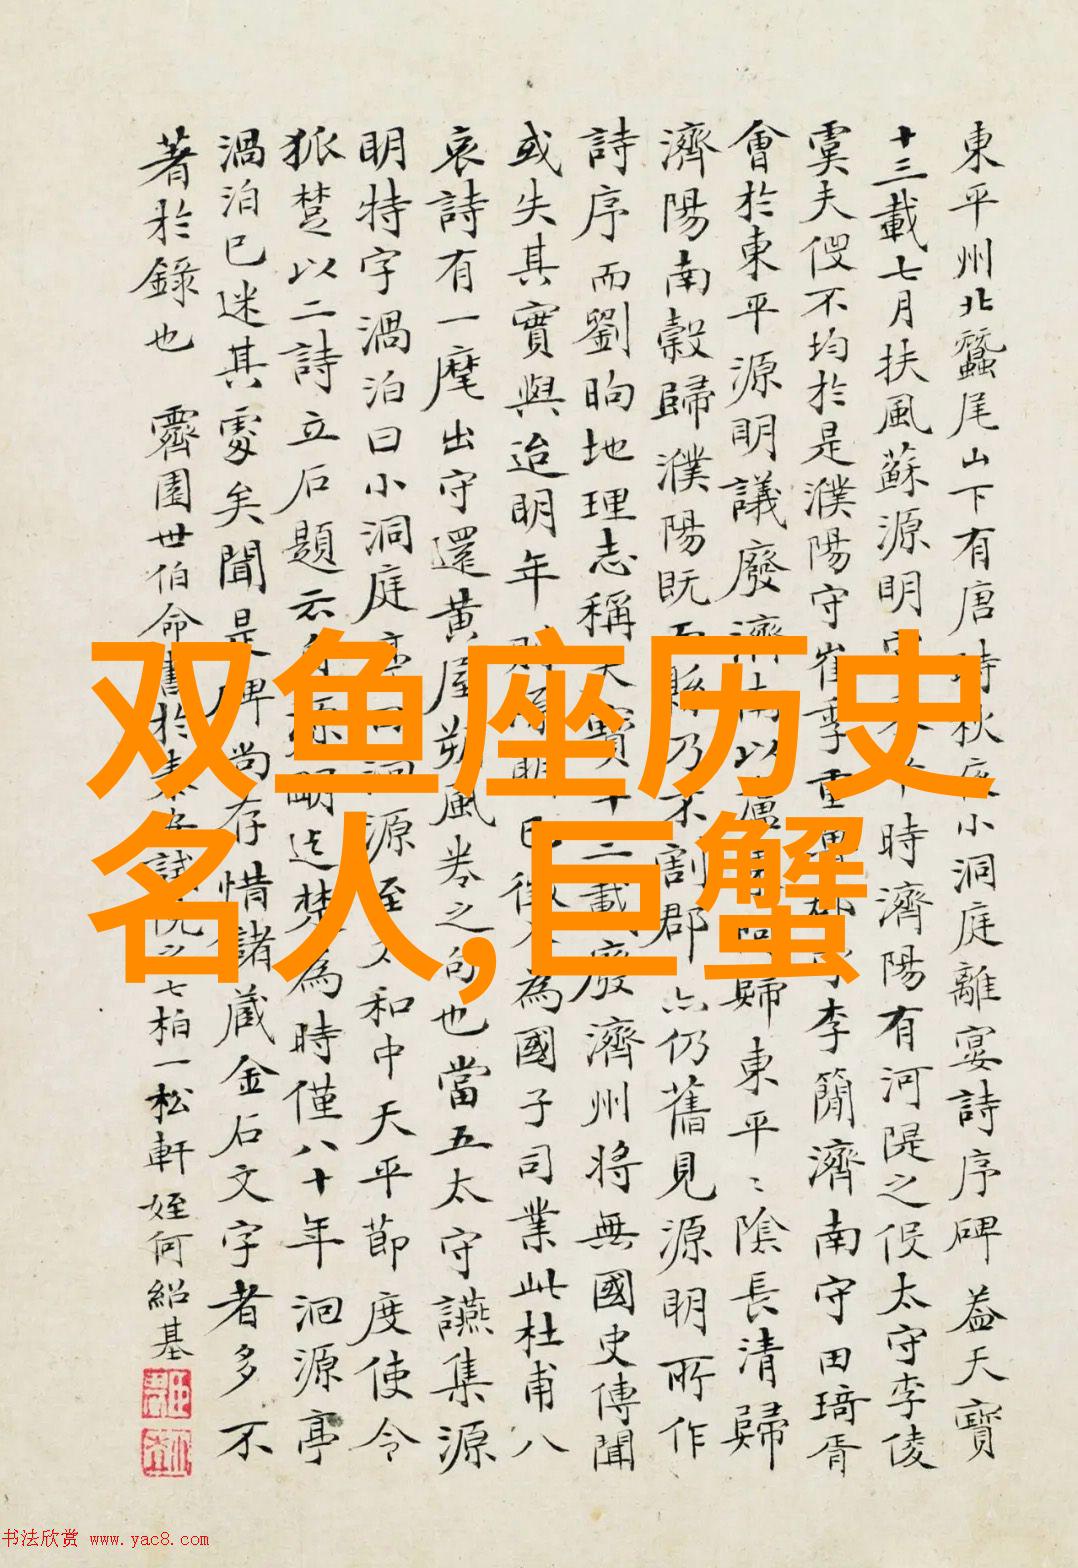 東平州北蠶尾山下有唐時秋夜小洞庭離宴詩序碑蓋天寶
十三載七月扶風蘇源明守東平時濟陽有河隄之役太守李倰
虞夫役不均於是濮陽守崔季重魯郡守李簡濟南守田琦
會於東平源明議廢濟陽以盧縣歸東平〻陰長清歸
濟陽南穀歸濮陽既而縣乃不割郡亦仍舊見源明所作
詩序而劉昫地理志稱天寶十二載廢濟州將無國史傳聞
或失其實與迨明年源明已徵入為國子司業此杜甫八
哀詩有一麾出守還黃屋朔風卷之句也當五太守讌集源
明特字渦泊曰小洞庭亭洄源至太和中天平節度使令
狐楚以二詩立石題云自源明迄楚為時僅八十年洄源亭
渦泊已迷其處矣聞是碑尚存惜諸藏金石文字者多不
著於錄也 霽園世伯命書於七柏一松軒 姪何紹基
双鱼座历史
名人,巨蟹
书法欣赏 www.yac8.com